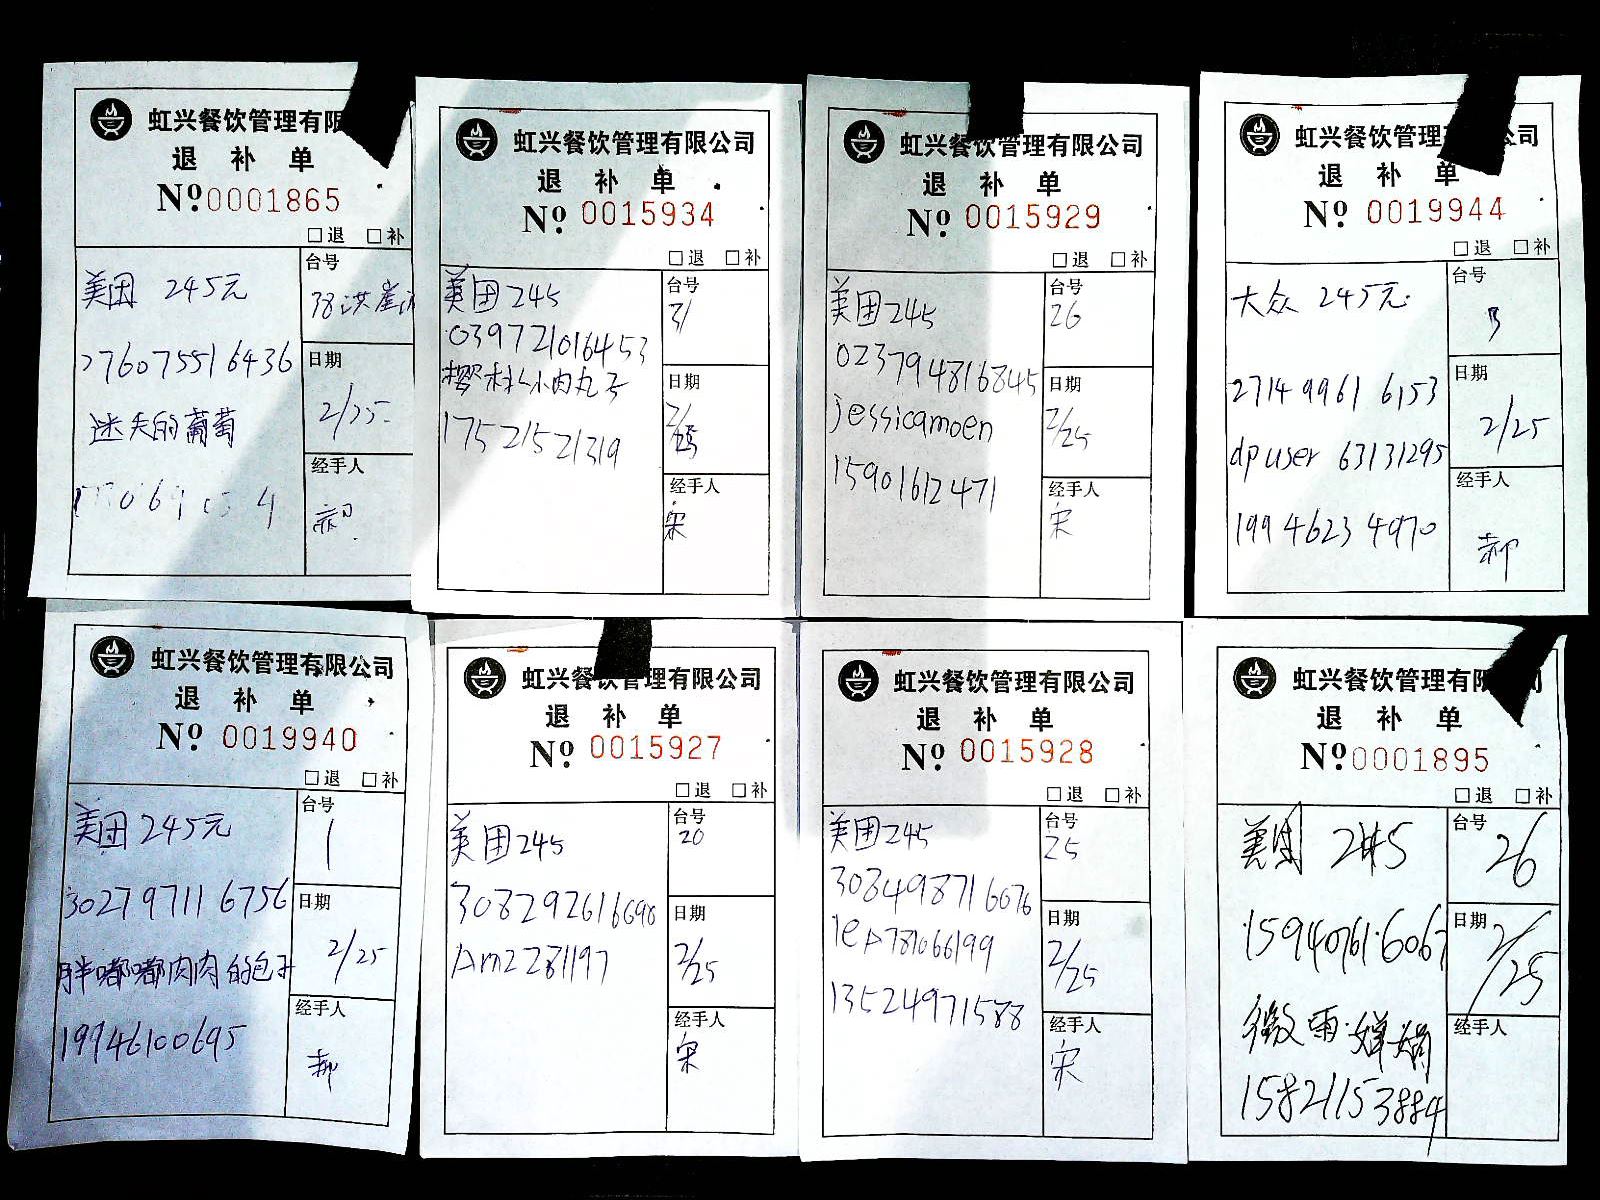 虹兴餐饮管理有限
退补单
Nº 0001865
□退 □补
美团 245元
276075516436
迷失的葡萄
台号
38洪崖
日期
2/25
经手人
虹兴餐饮管理有限公司
退补单
Nº 0015934
□退 □补
美团245
039721016453
樱材小肉丸子
17521521319
台号
31
日期
2/25
经手人
宋
虹兴餐饮管理有限公司
退补单
Nº 0015929
□退 □补
美团245
023794816845
jessicamoen
15901612471
台号
26
日期
2/25
经手人
宋
虹兴餐饮管理有限公司
退补单
Nº 0019944
□退 □补
大众 245元
2714 9961 6153
dpuser 63131295
199 4623 4970
台号
3
日期
2/25
经手人
郝
虹兴餐饮管理有限公司
退补单
Nº 0019940
□退 □补
美团 245元
302797116756
胖嘟嘟肉肉的包子
19946100695
台号
1
日期
2/25
经手人
郝
虹兴餐饮管理有限公司
退补单
Nº 0015927
□退 □补
美团245
308292616698
Am2281197
台号
20
日期
2/25
经手人
宋
虹兴餐饮管理有限公司
退补单
Nº 0015928
□退 □补
美团245
308498716676
lep781066199
13524971588
台号
25
日期
2/25
经手人
宋
虹兴餐饮管理有限公司
退补单
Nº 0001895
□退 □补
美团 245
159407616067
微雨婵娟
15821153884
台号
26
日期
2/25
经手人